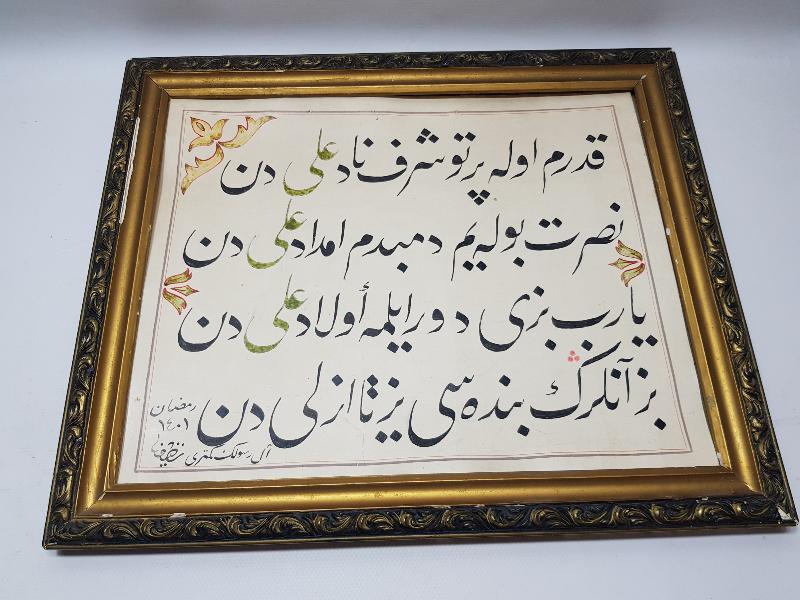 قدرم اوله پرتو شرف ناد علی دن
نصرت بوله یم دمبدم امداد علی دن
یا رب بزی دور ایلمه أولاد علی دن
بز آنلرڭ بنده سی یز تا ازلی دن
رمضان
١٤٠١
آل رسولك كمتری